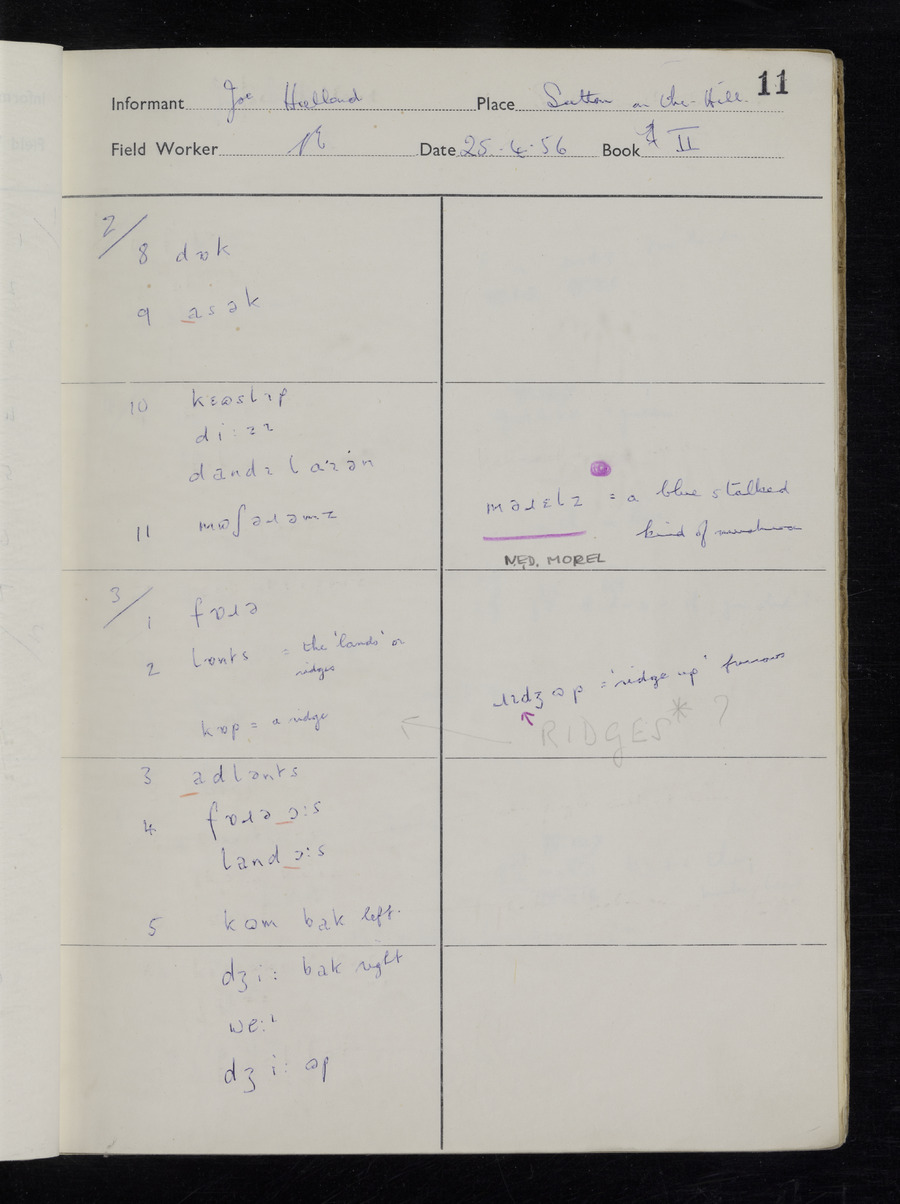 11
Informant Joe Holland Place Sutton on the Hill
Field Worker Date 25.4.56 Book II
2/
8 dɒk
9 asək
10 kɛɷslɪp
di:zɪ
dandɪ
11 mɷʃəɹəmz
məɹɛlz = a blue stalked
kind of mushroom
N.E.D. MOREL
3/
1 fɒɹə
2 lɒnts = the 'lands' or
ridges
kɒp = a ridge
ɹɪdʒ ɷp = 'ridge up' furrows
RIDGES* ?
3 adlənts
4 fɒɹə ɔ:s
land ɔ:s
5 kɷm bak left.
dʒi: bak right
we:ɪ
dʒi: ɷp